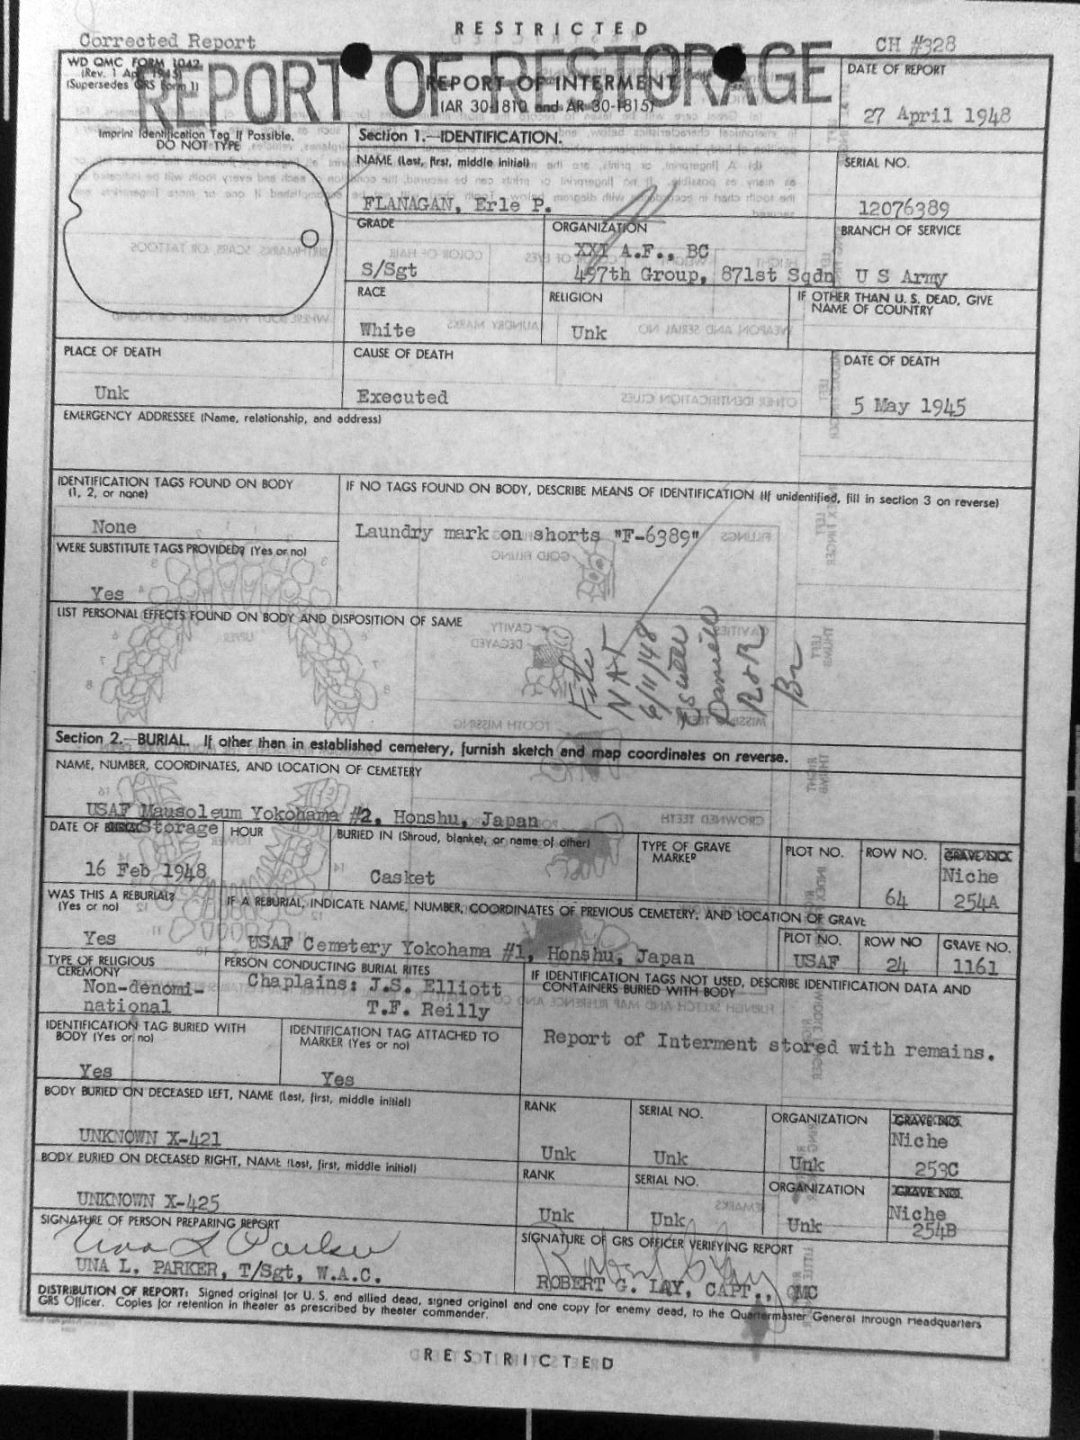 RESTRICTED
Corrected Report
CH #328
WD QMC FORM 1042
(Rev. 1 Apr 1945)
(Supersedes GRS Form 1)
REPORT OF RESTORAGE
REPORT OF INTERMENT
(AR 30-1810 and AR 30-1815)
DATE OF REPORT
27 April 1948
Imprint Identification Tag If Possible.
DO NOT TYPE
Section 1.—IDENTIFICATION.
NAME (Last, first, middle initial)
FLANAGAN, Erle P.
SERIAL NO.
12076389
GRADE
S/Sgt
ORGANIZATION
XXI A.F., BC
497th Group, 871st Sqdn
BRANCH OF SERVICE
U S Army
RACE
White
RELIGION
Unk
IF OTHER THAN U. S. DEAD, GIVE
NAME OF COUNTRY
PLACE OF DEATH
Unk
CAUSE OF DEATH
Executed
DATE OF DEATH
5 May 1945
EMERGENCY ADDRESSEE (Name, relationship, and address)
IDENTIFICATION TAGS FOUND ON BODY
(1, 2, or none)
None
IF NO TAGS FOUND ON BODY, DESCRIBE MEANS OF IDENTIFICATION (If unidentified, fill in section 3 on reverse)
Laundry mark on shorts "F-6389"
WERE SUBSTITUTE TAGS PROVIDED? (Yes or no)
Yes
LIST PERSONAL EFFECTS FOUND ON BODY AND DISPOSITION OF SAME
File
NAT
6/11/48
Daniels
R&R
Br
Section 2.—BURIAL. If other than in established cemetery, furnish sketch and map coordinates on reverse.
NAME, NUMBER, COORDINATES, AND LOCATION OF CEMETERY
USAF Mausoleum Yokohama #2, Honshu, Japan
DATE OF BURIAL Storage
16 Feb 1948
HOUR
BURIED IN (Shroud, blanket, or name of other)
Casket
TYPE OF GRAVE
MARKER
PLOT NO.
ROW NO.
64
GRAVE NO.
Niche
254A
WAS THIS A REBURIAL?
(Yes or no)
Yes
IF A REBURIAL, INDICATE NAME, NUMBER, COORDINATES OF PREVIOUS CEMETERY, AND LOCATION OF GRAVE
USAF Cemetery Yokohama #1, Honshu, Japan
PLOT NO.
USAF
ROW NO
24
GRAVE NO.
1161
TYPE OF RELIGIOUS
CEREMONY
Non-denomi-
national
PERSON CONDUCTING BURIAL RITES
Chaplains: J.S. Elliott
T.F. Reilly
IF IDENTIFICATION TAGS NOT USED, DESCRIBE IDENTIFICATION DATA AND
CONTAINERS BURIED WITH BODY
Report of Interment stored with remains.
IDENTIFICATION TAG BURIED WITH
BODY (Yes or no)
Yes
IDENTIFICATION TAG ATTACHED TO
MARKER (Yes or no)
Yes
BODY BURIED ON DECEASED LEFT, NAME (Last, first, middle initial)
UNKNOWN X-421
RANK
Unk
SERIAL NO.
Unk
ORGANIZATION
Unk
GRAVE NO.
Niche
253C
BODY BURIED ON DECEASED RIGHT, NAME (Last, first, middle initial)
UNKNOWN X-425
RANK
Unk
SERIAL NO.
Unk
ORGANIZATION
Unk
GRAVE NO.
Niche
254B
SIGNATURE OF PERSON PREPARING REPORT
Una L Parker
UNA L. PARKER, T/Sgt, W.A.C.
SIGNATURE OF GRS OFFICER VERIFYING REPORT
Robert G Lay
ROBERT G. LAY, CAPT., QMC
DISTRIBUTION OF REPORT: Signed original for U. S. and allied dead, signed original and one copy for enemy dead, to the Quartermaster General through Headquarters
GRS Officer. Copies for retention in theater as prescribed by theater commander.
RESTRICTED